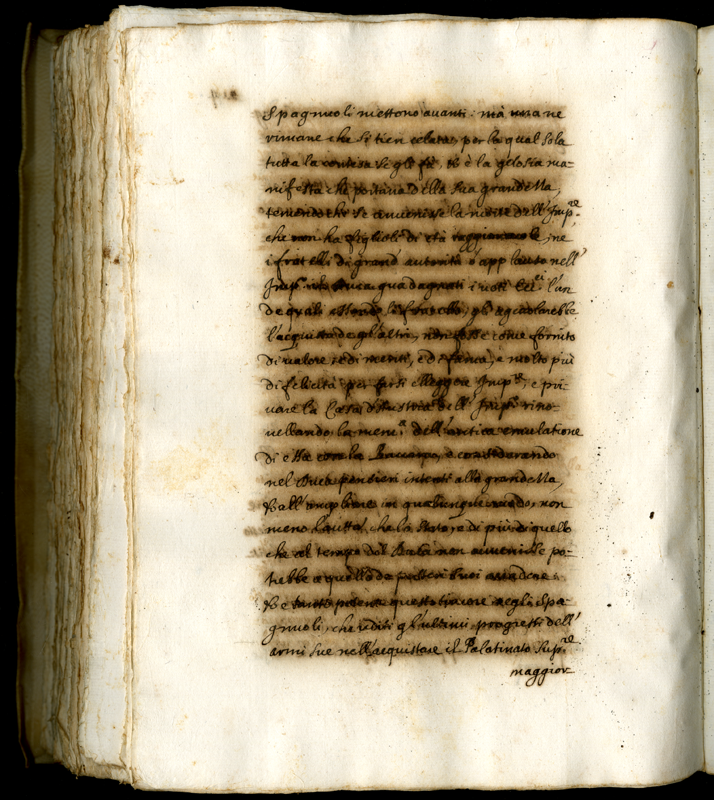 Spagnuoli mettono avanti: mà una ne
rimane che si tien celata, per la qual sola
tutta la contesa se gli fà, et è la gelosia ma-
nifesta che portava della sua grandezza,
temendo che se avvenisse la morte dell' Imp.re
che non ha figlioli di età, ne
i fratelli di grand' autorità ò applauso nell'
Imp.o guadagnati i voti l'un
de quali essendo il fratello, gli agevolarebbe
l'acquisto de gl' altri, non fosse come fornito
di valore, e di meriti, e di fama, e molto più
di felicità per farsi elleggere Imp.re, e pri-
vare la Casa d'Austria dell' Imp.o rino-
vellando la mem.a dell' antica emulatione
di essa con la Bavara, e considerando
nel Duca pensieri intenti alla grandezza,
et all' ampliene in qualunque modo, non
meno l'autta, che lo stato, e di più di quello
che al tempo del non avvenisse po-
trebbe a quello de posteri suoi accadere.
Et è tanto potente questo timore negli Spa-
gnuoli, che uditi gl' ultimi progressi dell'
armi sue nell' acquistare il Palatinato Sup.re
maggior-